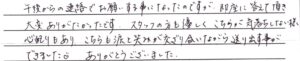 午後からの連絡でお願いする事になったのですが 即座に答えて頂き
大変ありがたかったです スタッフの方も優しく こちらが気疲れしない様
心配りもあり こちらも涙と笑いが交ざり合いながら送り出す事が
できました ありがとうございました。